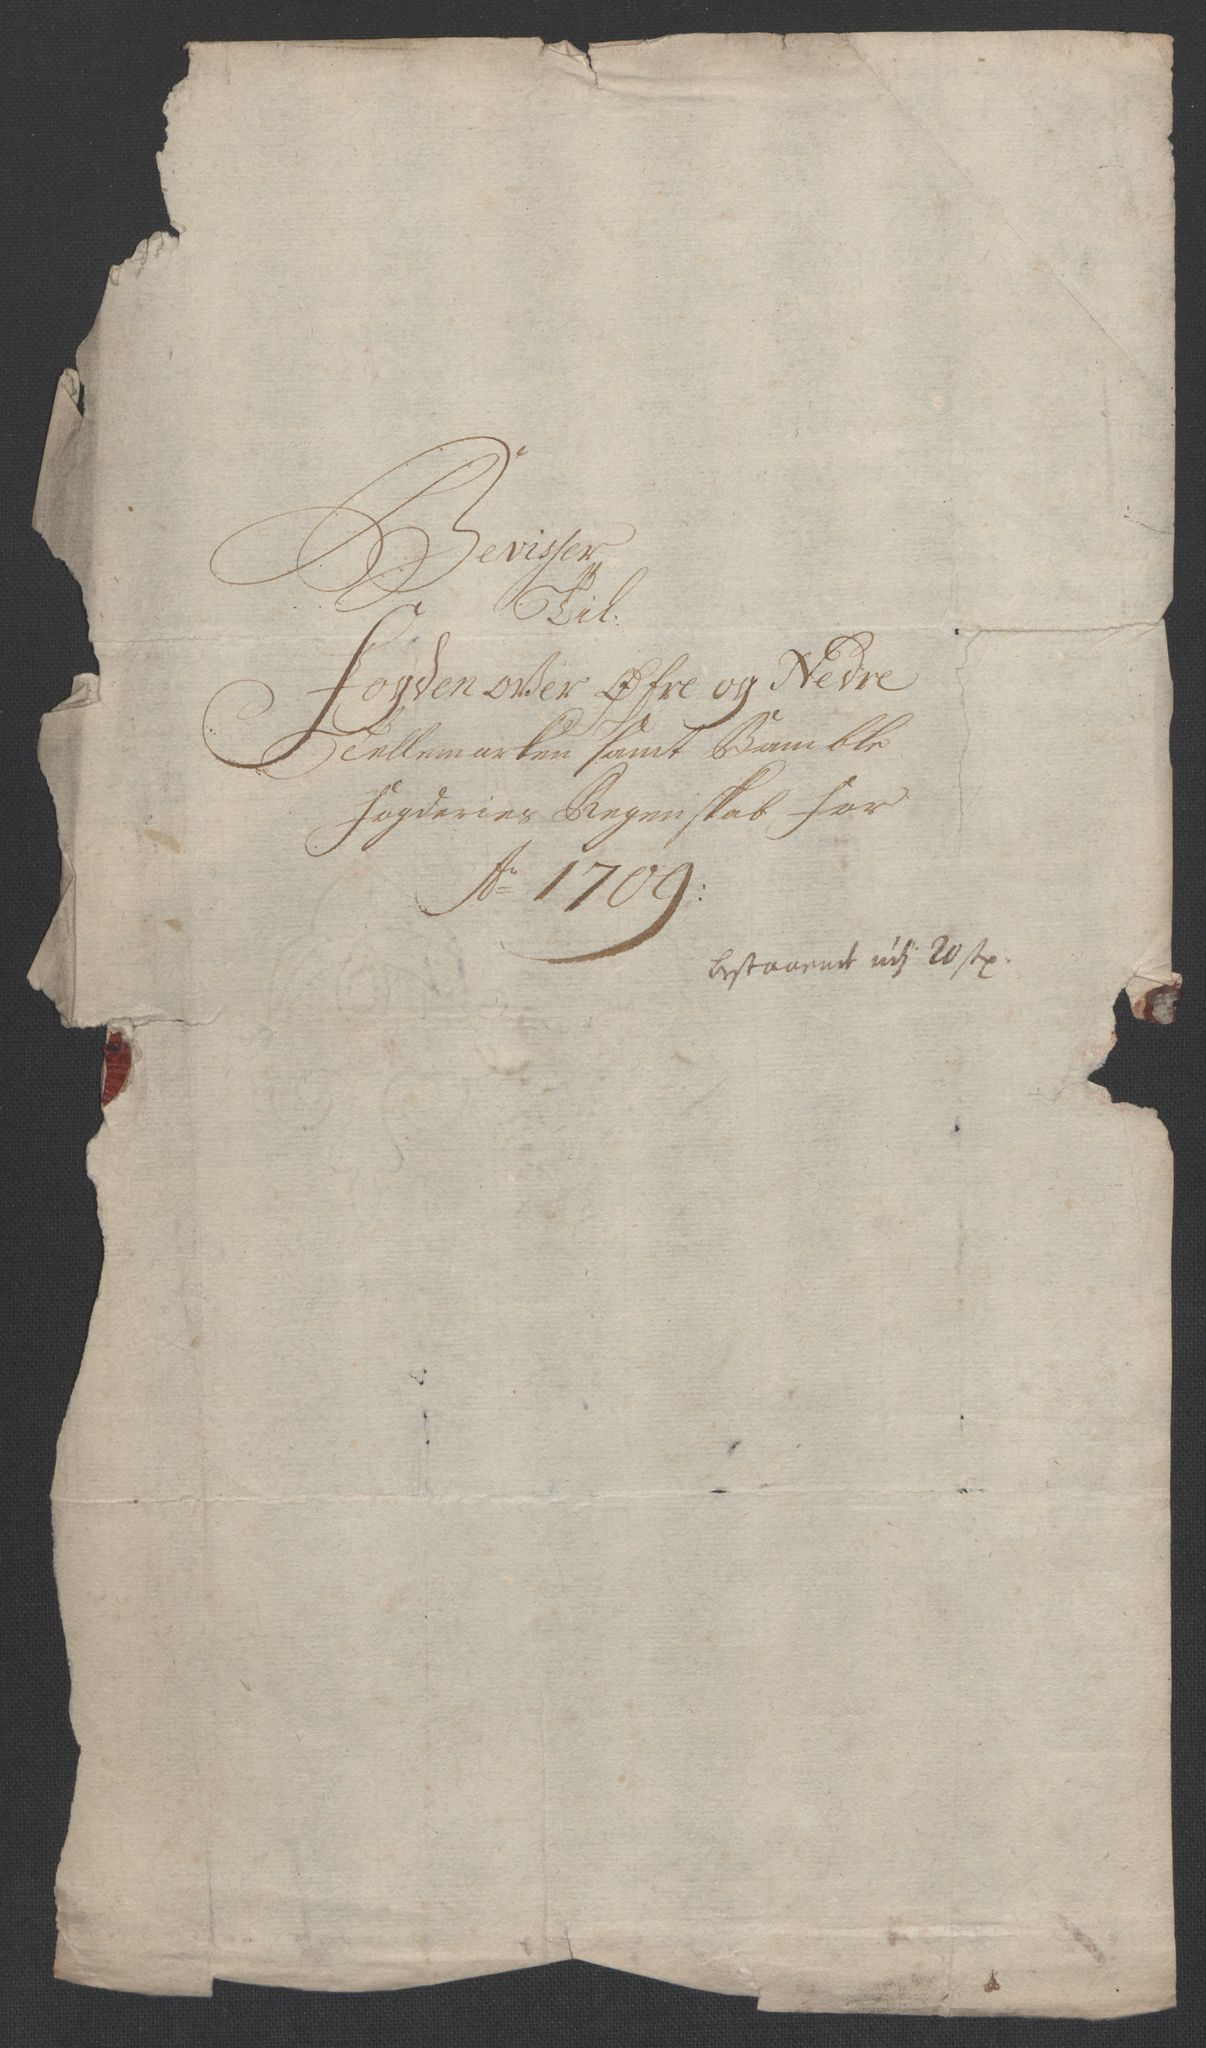 Bevisser
Til
Fogden over Øfre og Nedre
Tellemarken samt Bamble
fogderies Regenskab for
Ao 1709:
bestaaende udj 20 str.